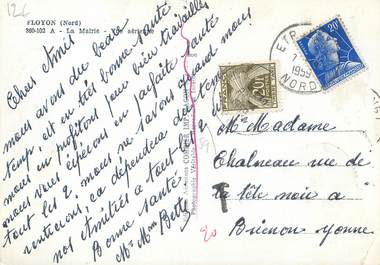 126
FLOYON (Nord)
380-102 A - La Mairie - Vue aérienne
Chers Amis
nous avons du beau
temps, et en très bonne santé
nous en profitons pour bien travailler
nous vous espérons en parfaite santé
tout les 2, nous ne savons quand nous
rentrerons, ça dépendera du temps
nos Amitiés à tout les 2
Bonne santé
Mr Mme Bette
ETR
1959
NORD
20F
20F
Mr Madame
Chalneau rue de
la tête noir à
Brienon Yonne
T
20